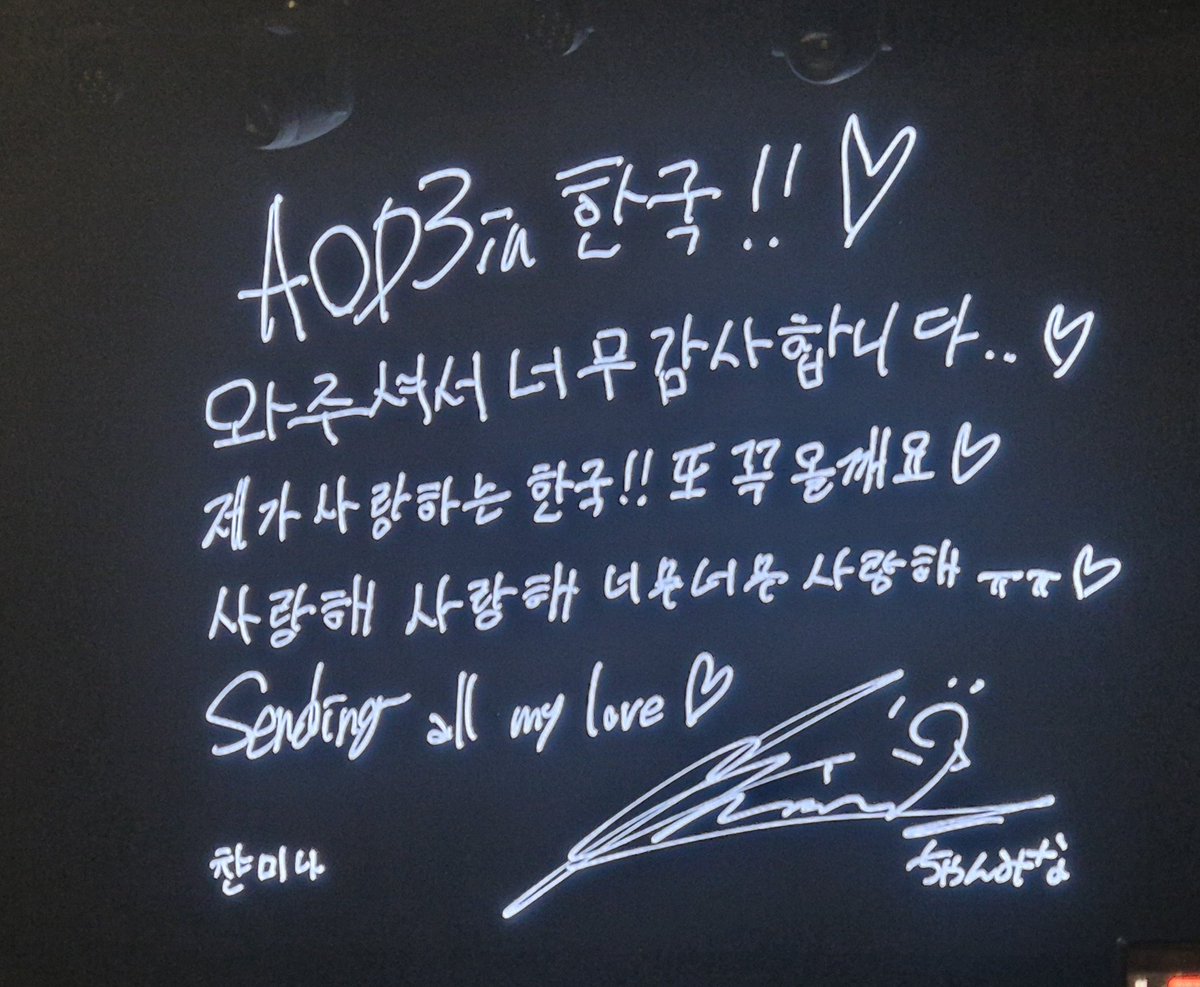 AOP3ia 한국!! ♡
와주셔서 너무 감사합니다.. ♡
제가 사랑하는 한국!! 또 꼭 올께요♡
사랑해 사랑해 너무너무 사랑해 ㅠㅠ♡
Sending all my love♡
챤미나
ちゃんみな